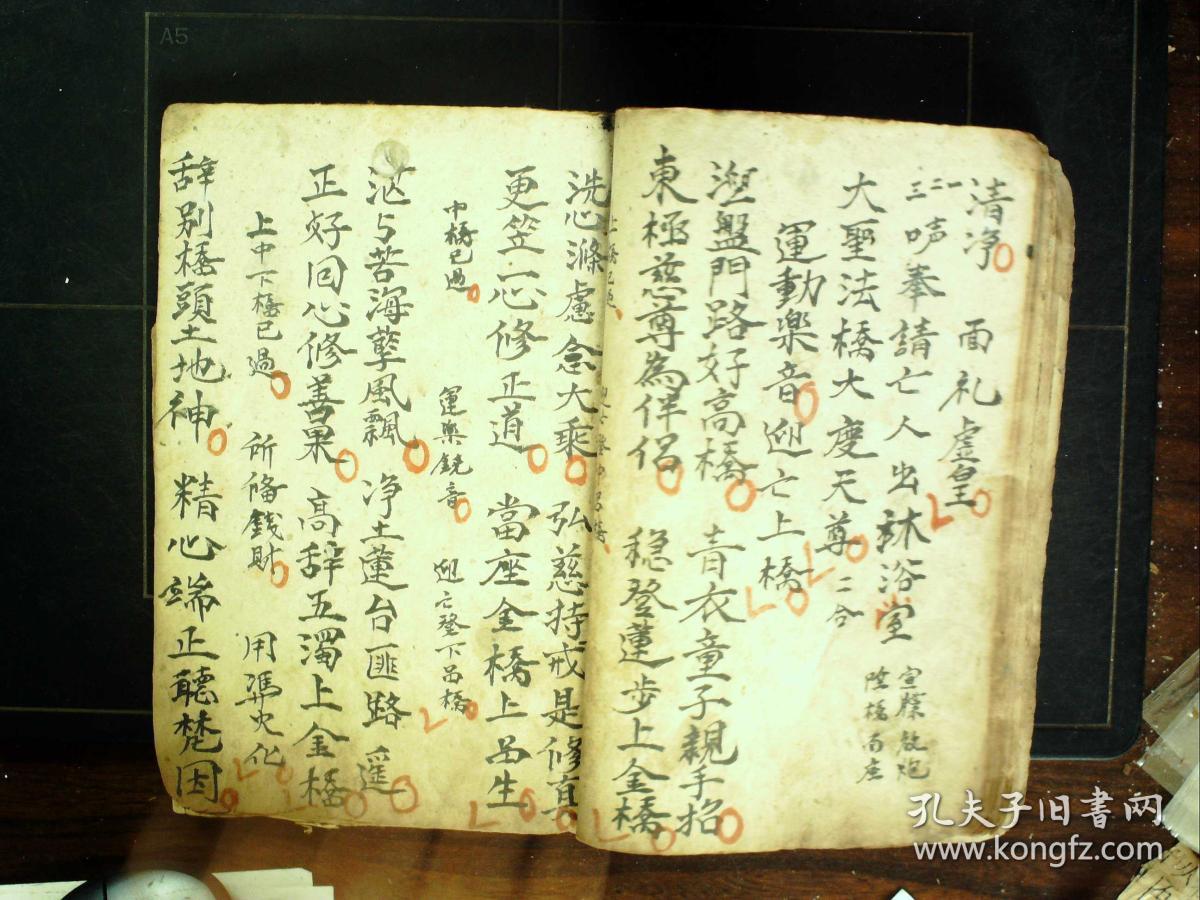 清净 面礼虚皇
一二三 唪奉請亡人出沐浴室 宣牒放炮 陰橋南座
大聖法橋大度天尊 二合
運動樂音 迎亡上橋
涅盤門路好高橋 青衣童子親手招
東極慈尊為伴侣 穏登蓮步上金橋
洗心滌慮念大乘 弘慈持戒是修真
更笠一心修正道 當座金橋上品生
中橋已過 運樂鐃音 迎亡登下品橋
茫与苦海孽風飄 净土蓮台匪路遥
正好回心修善果 高辞五濁上金橋
上中下橋已過 所俻錢財 用凴火化
辞别橋頭土地神 精心端正聽梵因
A5
孔夫子旧书网
www.kongfz.com